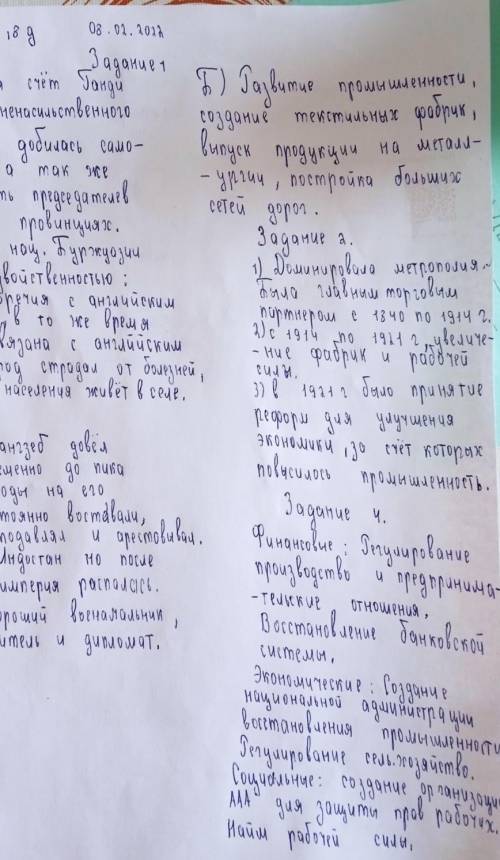 ,8 д 08.02.2022
Задание 1
счёт Ганди
ненасильственного
добилась само-
а так же
ть председателев
провинциях.
нац. Буржуазии
войственностью:
речия с английским
в то же время
вязана с английским
род страдал от болезней,
населения живёт в селе.
ангзеб довёл
еменно до пика
оды на его
тоянно воставали,
подавлял и арестовывал.
Индостан но после
империя распалась.
ороший военачальник,
итель и дипломат.
Б) Развитие промышленности,
создание текстильных фабрик,
выпуск продукции на металл-
-ургии, постройка больших
сетей дорог.
Задание 2.
1) Доминировала метрополия.
Была главным торговым
партнером с 1840 по 1914 г.
2) с 1914 по 1921 г увеличе-
-ние фабрик и рабочей
силы.
3) в 1921 г было принятие
реформ для улучшения
экономики, за счёт которых
повысилось промышленность.
Задание 4.
Финансовые: Регулирование
производство и предпринима-
-тельские отношения.
Восстановление банковской
системы.
Экономические: Создание
национальной администрации
восстановления промышленности
Регулирование сель.хозяйство.
Социальные: создание организацию
ААА для защиты прав рабочих.
Найм рабочей силы.